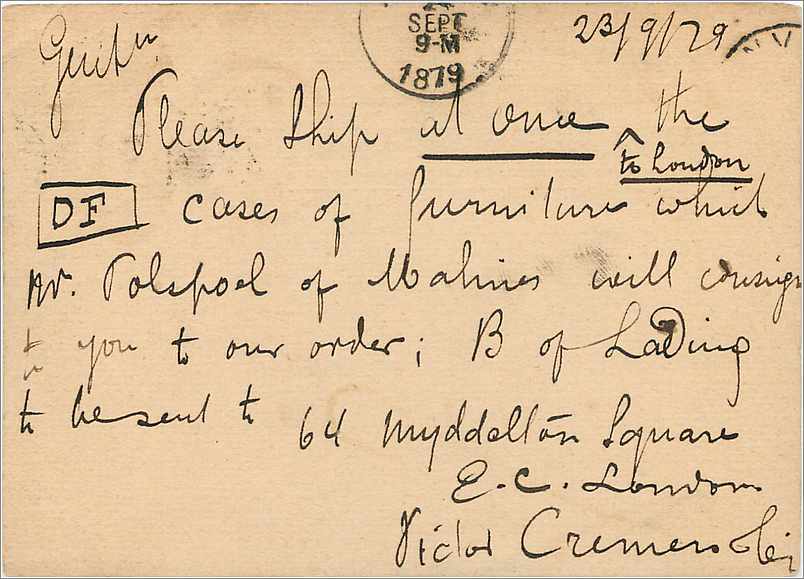 SEPT
9-M
1879
23/9/79
Gentn.
Please Ship at once ^ the
to London
DF cases of furniture which
Mr. Tolspoel of Malines will consign
to you to our order; B of Lading
to be sent to 64 Myddelton Square
E.C. London
Victor Cremers & Ci